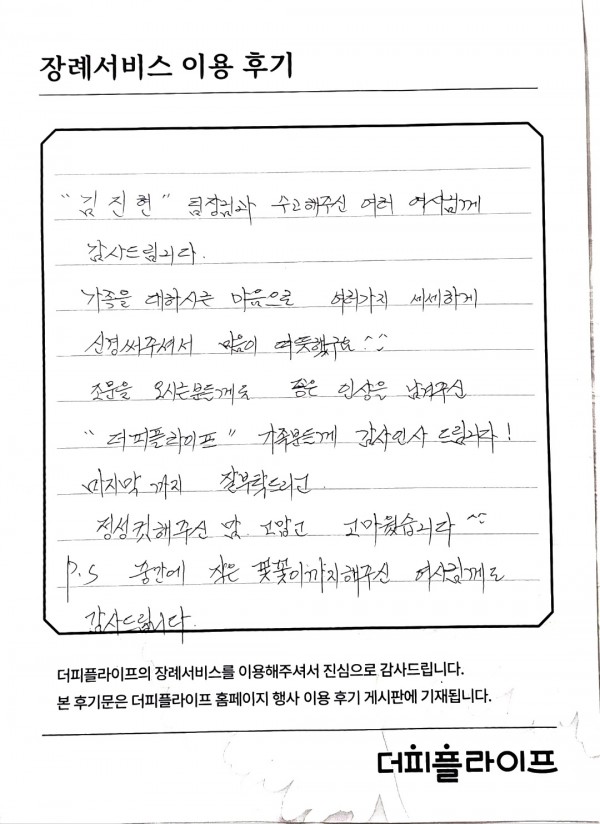 장례서비스 이용 후기
"김진현" 팀장님과 수고해주신 여러 여사님께
감사드립니다.
가족을 대하시는 마음으로 여러가지 세세하게
신경써주셔서 마음이 따뜻했구요 ^^
조문을 오시는분들께도 좋은 인상을 남겨주신
"더피플라이프" 가족분들께 감사인사 드립니다!
마지막까지 잘부탁드리고
정성껏해주신 맘 고맙고 고마웠습니다 ^^
P.S 중간에 작은 꽃꽂이까지해주신 여사님께도
감사드립니다.
더피플라이프의 장례서비스를 이용해주셔서 진심으로 감사드립니다.
본 후기문은 더피플라이프 홈페이지 행사 이용 후기 게시판에 기재됩니다.
더피플라이프